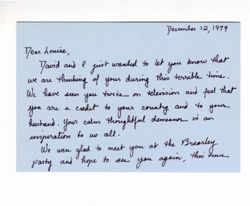 December 12, 1979
Dear Louise,
David and I just wanted to let you know that
we are thinking of your during this terrible time.
We have seen you twice on television and feel that
you are a credit to your country and to your
husband. Your calm thoughtful demeanor is an
inspiration to us all.
We were glad to meet you at the Brearley
party and hope to see you again, this time